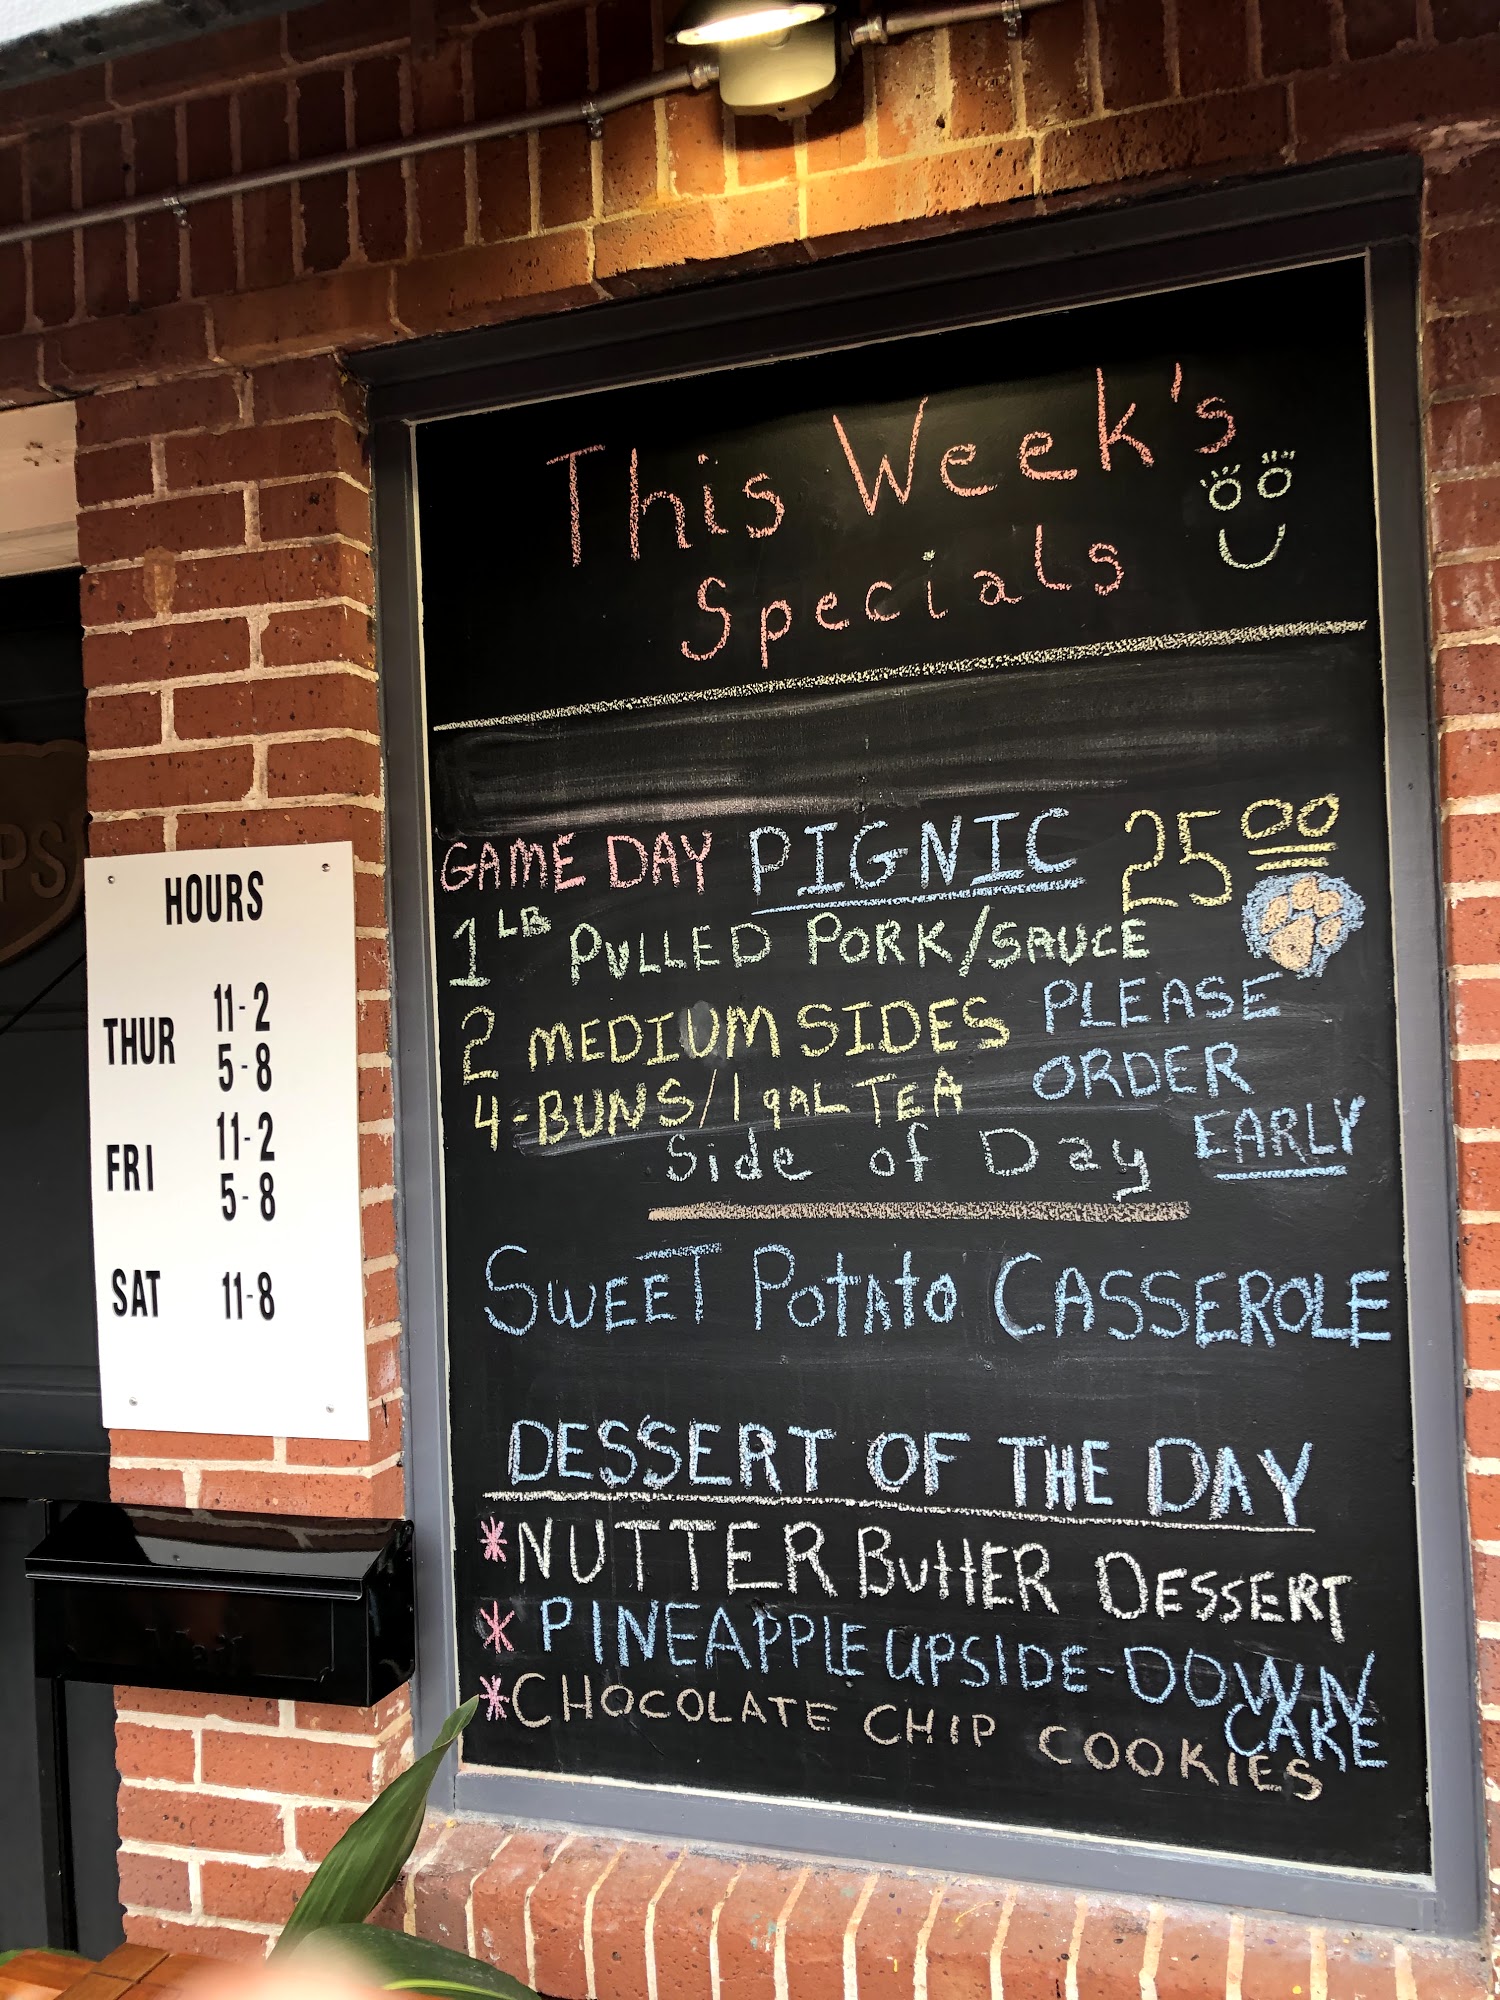 This Week's
Specials
GAME DAY PIGNIC 25 00
1 LB PULLED PORK/SAUCE
2 MEDIUM SIDES
4-BUNS/1 gAL TEA
PLEASE
ORDER
EARLY
Side of Day
SWEET POTATO CASSEROLE
DESSERT OF THE DAY
*NUTTER BUTTER DESSERT
* PINEAPPLE UPSIDE-DOWN
CAKE
*CHOCOLATE CHIP COOKIES
HOURS
THUR 11-2
5-8
FRI 11-2
5-8
SAT 11-8
PS